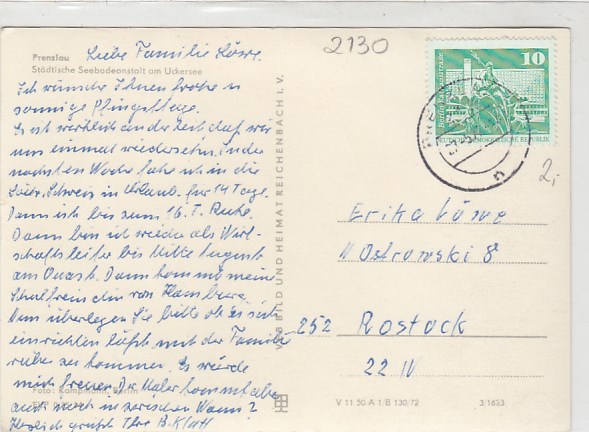 2130
Prenzlau
Städtische Seebadeanstalt am Uckersee
Liebe Familie Löwe.
Ich wünsche Ihnen frohe u
sonnige Pfingsttage.
Es ist wirklich an der Zeit daß wir
uns einmal wiedersehen. In der
nächsten Woche fahre ich in die
Sächs. Schweiz in Urlaub. für 14 Tage.
Dann ist bis zum 16. 7. Ruhe.
Dann bin ich wieder als Wirt-
schaftsleiter bis Mitte August
am Quast. Dann kommt meine
Schulfreundin von Hamburg.
Dann überlegen Sie bitte ob Es sich
einrichten läßt mit der Familie
rüber zu kommen. Es würde
mich freuen. Der Vater kommt aber
auch noch in zwischen Wann?
Herzlich grüßt Ihre B. Klatt
Foto: Kampmann, Berlin
VEB BILD UND HEIMAT REICHENBACH I. V.
10
DEUTSCHE DEMOKRATISCHE REPUBLIK
2,-
Erika Löwe
N Ostrowski 8
252 Rostock
22 IV
V 11 50 A 1/B 130/72 3/1633